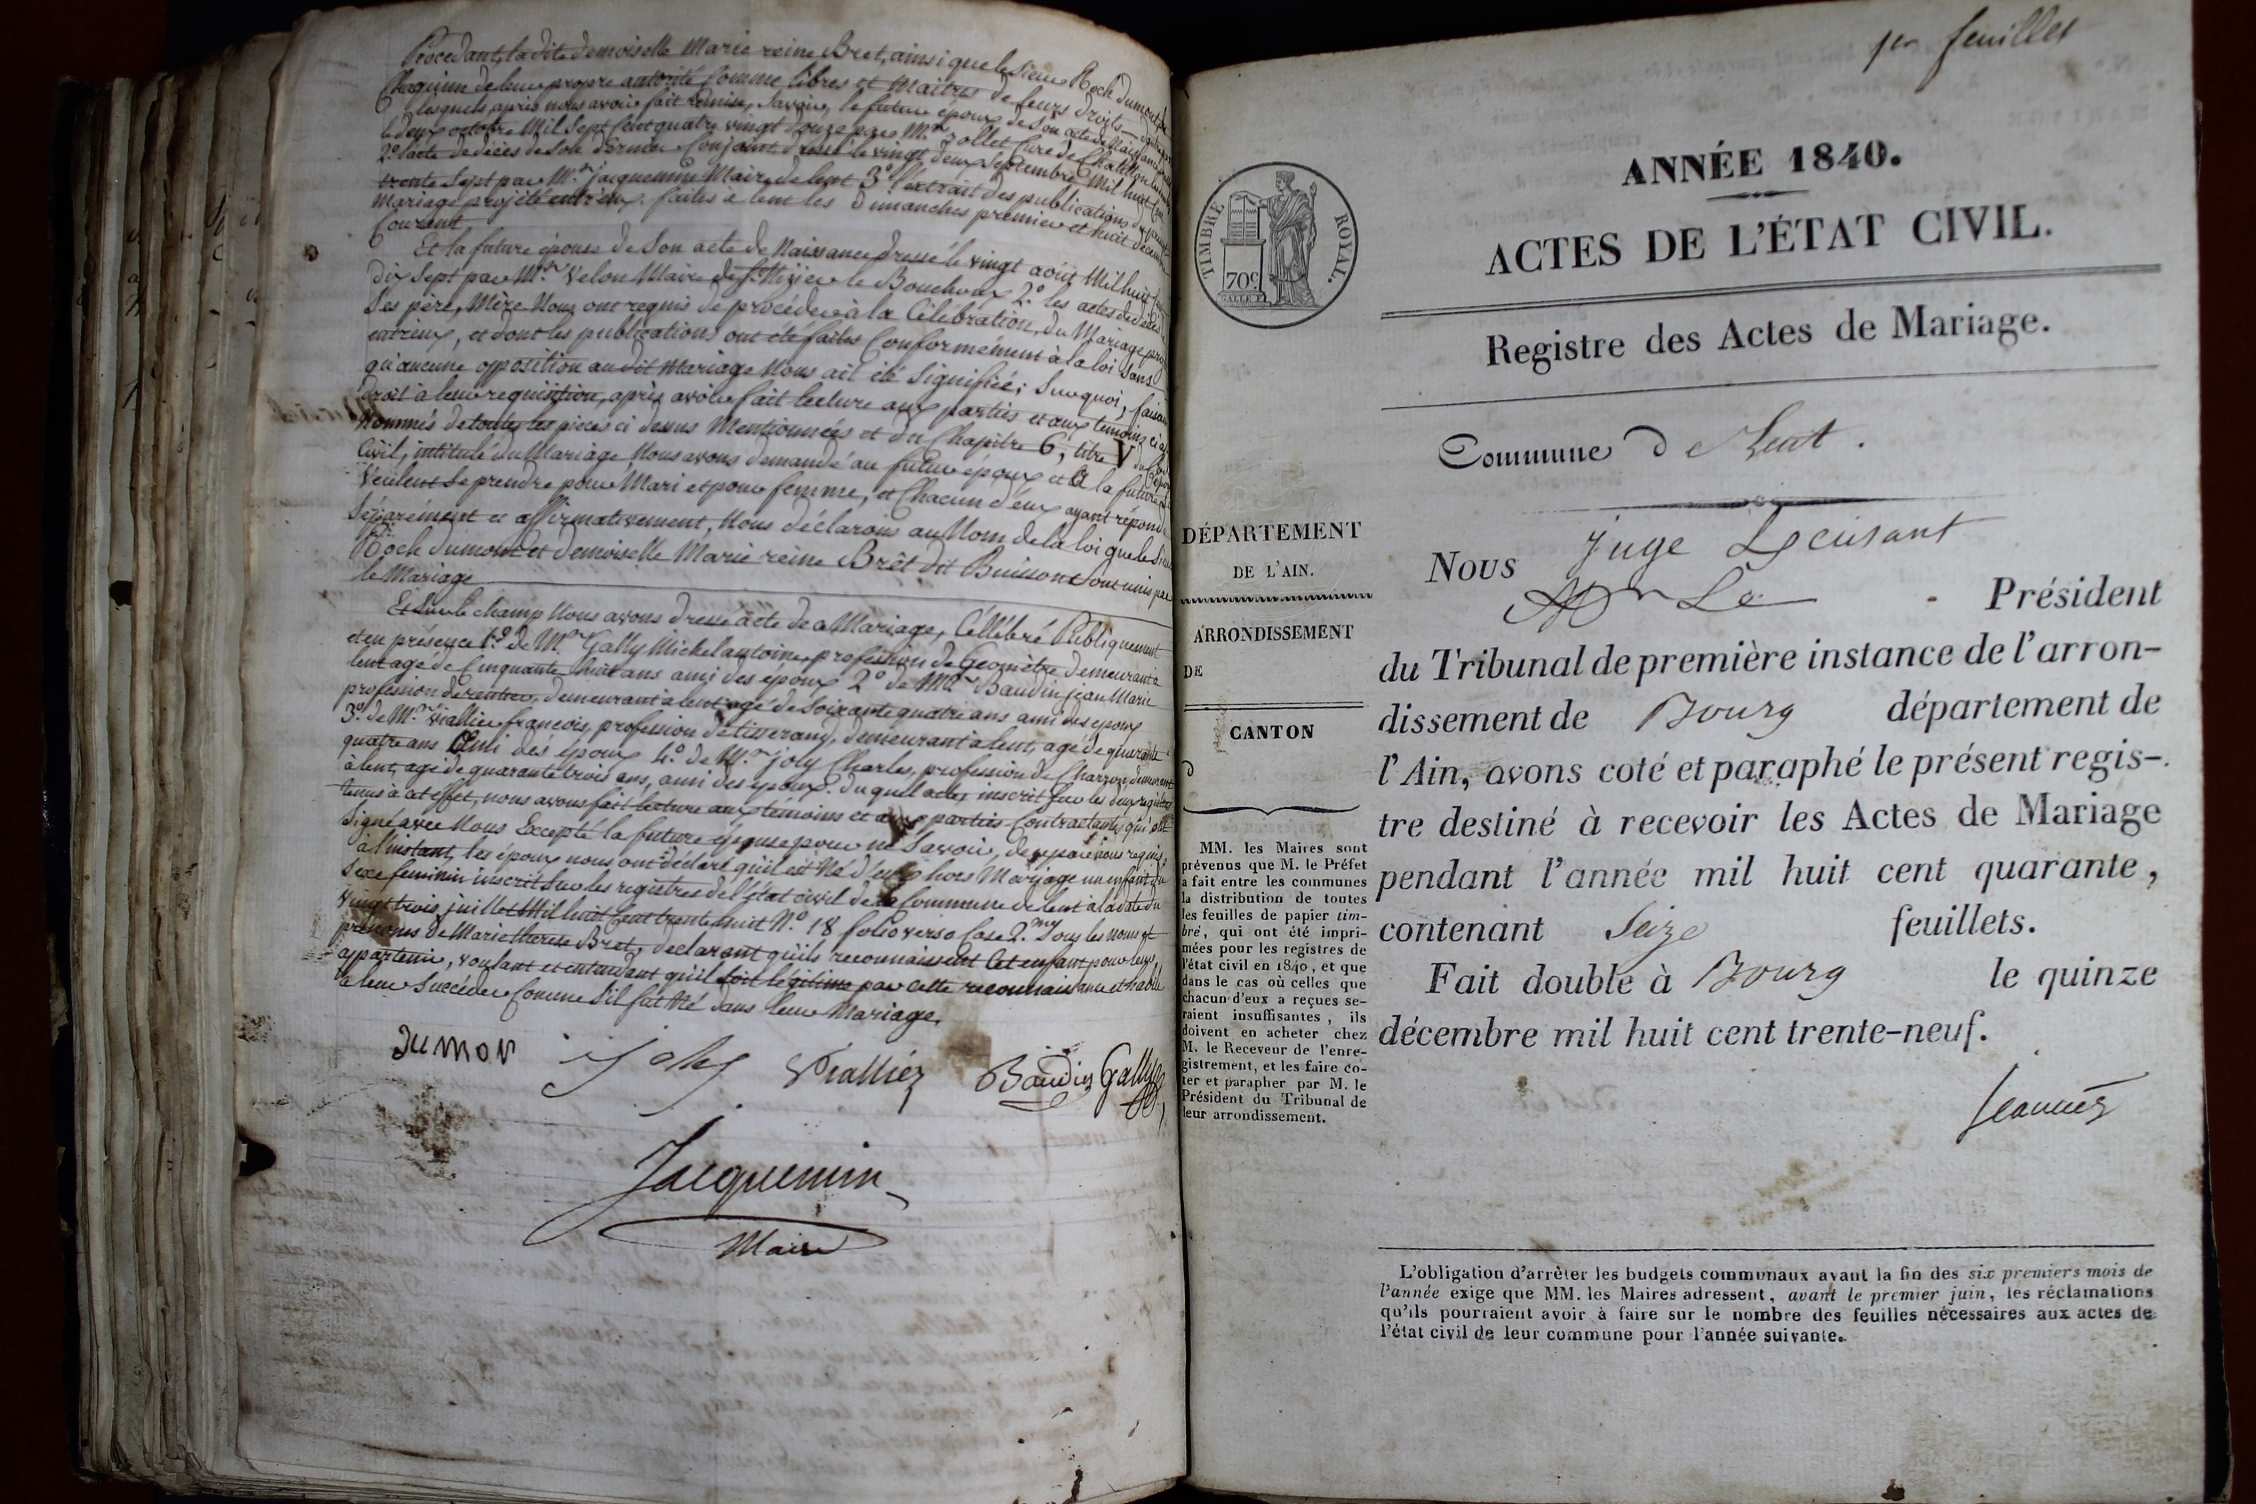 Procédant, la dite demoiselle Marie reine Bret, ainsi que le Sieur Roch dumont
Chaquun de leur propre autorité Comme libres et Maitres de leurs droits
lesquels, après nous avoir fait remise, Savoir, le futur époux de Son acte de Naissance
le deux octobre Mil Sept Cent quatre vingt douze par Mr. Jollet Curé de Chatillon
2.° l'acte de décès de Son dernier Conjoint dressé le vingt deux Septembre Mil huit Cent
trente Sept par Mr. Jacquemin Maire de lent 3° l'extrait des publications du
Mariage projété entr'eux. faites à lent les Dimanches premier et huit décembre
Courent
Et la future épouse de Son acte de Naissance dressé le vingt août Mil huit Cent
Dix Sept par Mr. Velon Maire de St. Nizier le Bouchoux 2.° les actes de décès
Ses père, Mère Nous ont requis de procéder à la Célébration, du Mariage projeté
entr'eux, et dont les publications ont été faites Conformément à la loi Sans
qu'aucune opposition au dit Mariage Nous ait été Signifiée; Surquoi, faisant
droit à leur requisition, après avoir fait lecture aux parties et aux temoins ci après
Nommés de toutes les pièces ci dessus Mentionnées et du Chapitre 6, titre V du Code
Civil, intitulé du Mariage, Nous avons demandé au futur époux et à la future
Veulent Se prendre pour Mari et pour femme, et Chacun d'eux ayant répondu
Séparément et affirmativement, Nous déclarons au Nom de la loi que le Sieur
Roch dumont et demoiselle Marie reine Brêt dit Buisson Sont unis par
le Mariage
Et Sur le champ Nous avons dressé acte de ce Mariage, Céllébré Publiquement
et en présence 1.° de Mr. Gally Michel antoine, profession de Geomètre demeurant à
lent agé de Cinquante huit ans ami des époux 2° de Mr. Baudin jean Marie
profession de rentier, demeurant à lent agé de Soixante quatre ans ami des epoux
3.° de Mr. Viallier francois, profession de tisserand, demeurant à lent, agé de quarante
quatre ans Ami des époux 4.° de Mr. joly Charles, profession de Charron, demeurant
à lent, agé de quarante trois ans, ami des époux. Du quel acte, inscrit Sur les deux registres
tenus à cet effet, nous avons fait lecture aux témoins et aux parties Contractantes qui ont
Signé avec Nous Excepté la future épouse pour ne Savoir, de par nous requis.
à l'instant, les époux nous ont déclaré qu'il est Né d'eux hors Mariage un enfant du
Sexe feminin inscrit Sur les registres de l'état civil de la Commune de lent à la date du
vingt trois juillet Mil huit Cent trente huit N.° 18 folio verso Case 2.me Sous les noms et
prénoms de Marie therese Bret, déclarant qu'ils reconnaissent Cet enfant pour leur
appartenir, voulant et entendant qu'il Soit légitimé par cette reconnaissance et habile
à leur Succéder Comme S'il fut Né dans leur Mariage.
Dumon joly Viallier Baudin Gally
Jacquemin
Maire
1er feuillet
ANNÉE 1840.
ACTES DE L'ÉTAT CIVIL.
TIMBRE ROYAL.
70c
Registre des Actes de Mariage.
Commune de Lent.
DÉPARTEMENT
DE L'AIN.
ARRONDISSEMENT
DE
CANTON
D
MM. les Maires sont
prévenus que M. le Préfet
a fait entre les communes
la distribution de toutes
les feuilles de papier tim-
bré, qui ont été impri-
mées pour les registres de
l'état civil en 1840, et que
dans le cas où celles que
chacun d'eux a reçues se-
raient insuffisantes, ils
doivent en acheter chez
M. le Receveur de l'enre-
gistrement, et les faire co-
ter et parapher par M. le
Président du Tribunal de
leur arrondissement.
Nous Juge
Mr Le Président
du Tribunal de première instance de l'arron-
dissement de Bourg département de
l'Ain, avons coté et paraphé le présent regis-
tre destiné à recevoir les Actes de Mariage
pendant l'année mil huit cent quarante,
contenant Seize feuillets.
Fait double à Bourg le quinze
décembre mil huit cent trente-neuf.
L'obligation d'arrêter les budgets communaux avant la fin des six premiers mois de
l'année exige que MM. les Maires adressent, avant le premier juin, les réclamations
qu'ils pourraient avoir à faire sur le nombre des feuilles nécessaires aux actes de
l'état civil de leur commune pour l'année suivante.